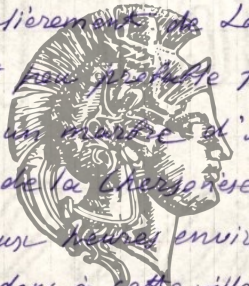 lièrement de La
peu probable
un marbre d'
de la Chersonèse
heures envir
dans à cette vill